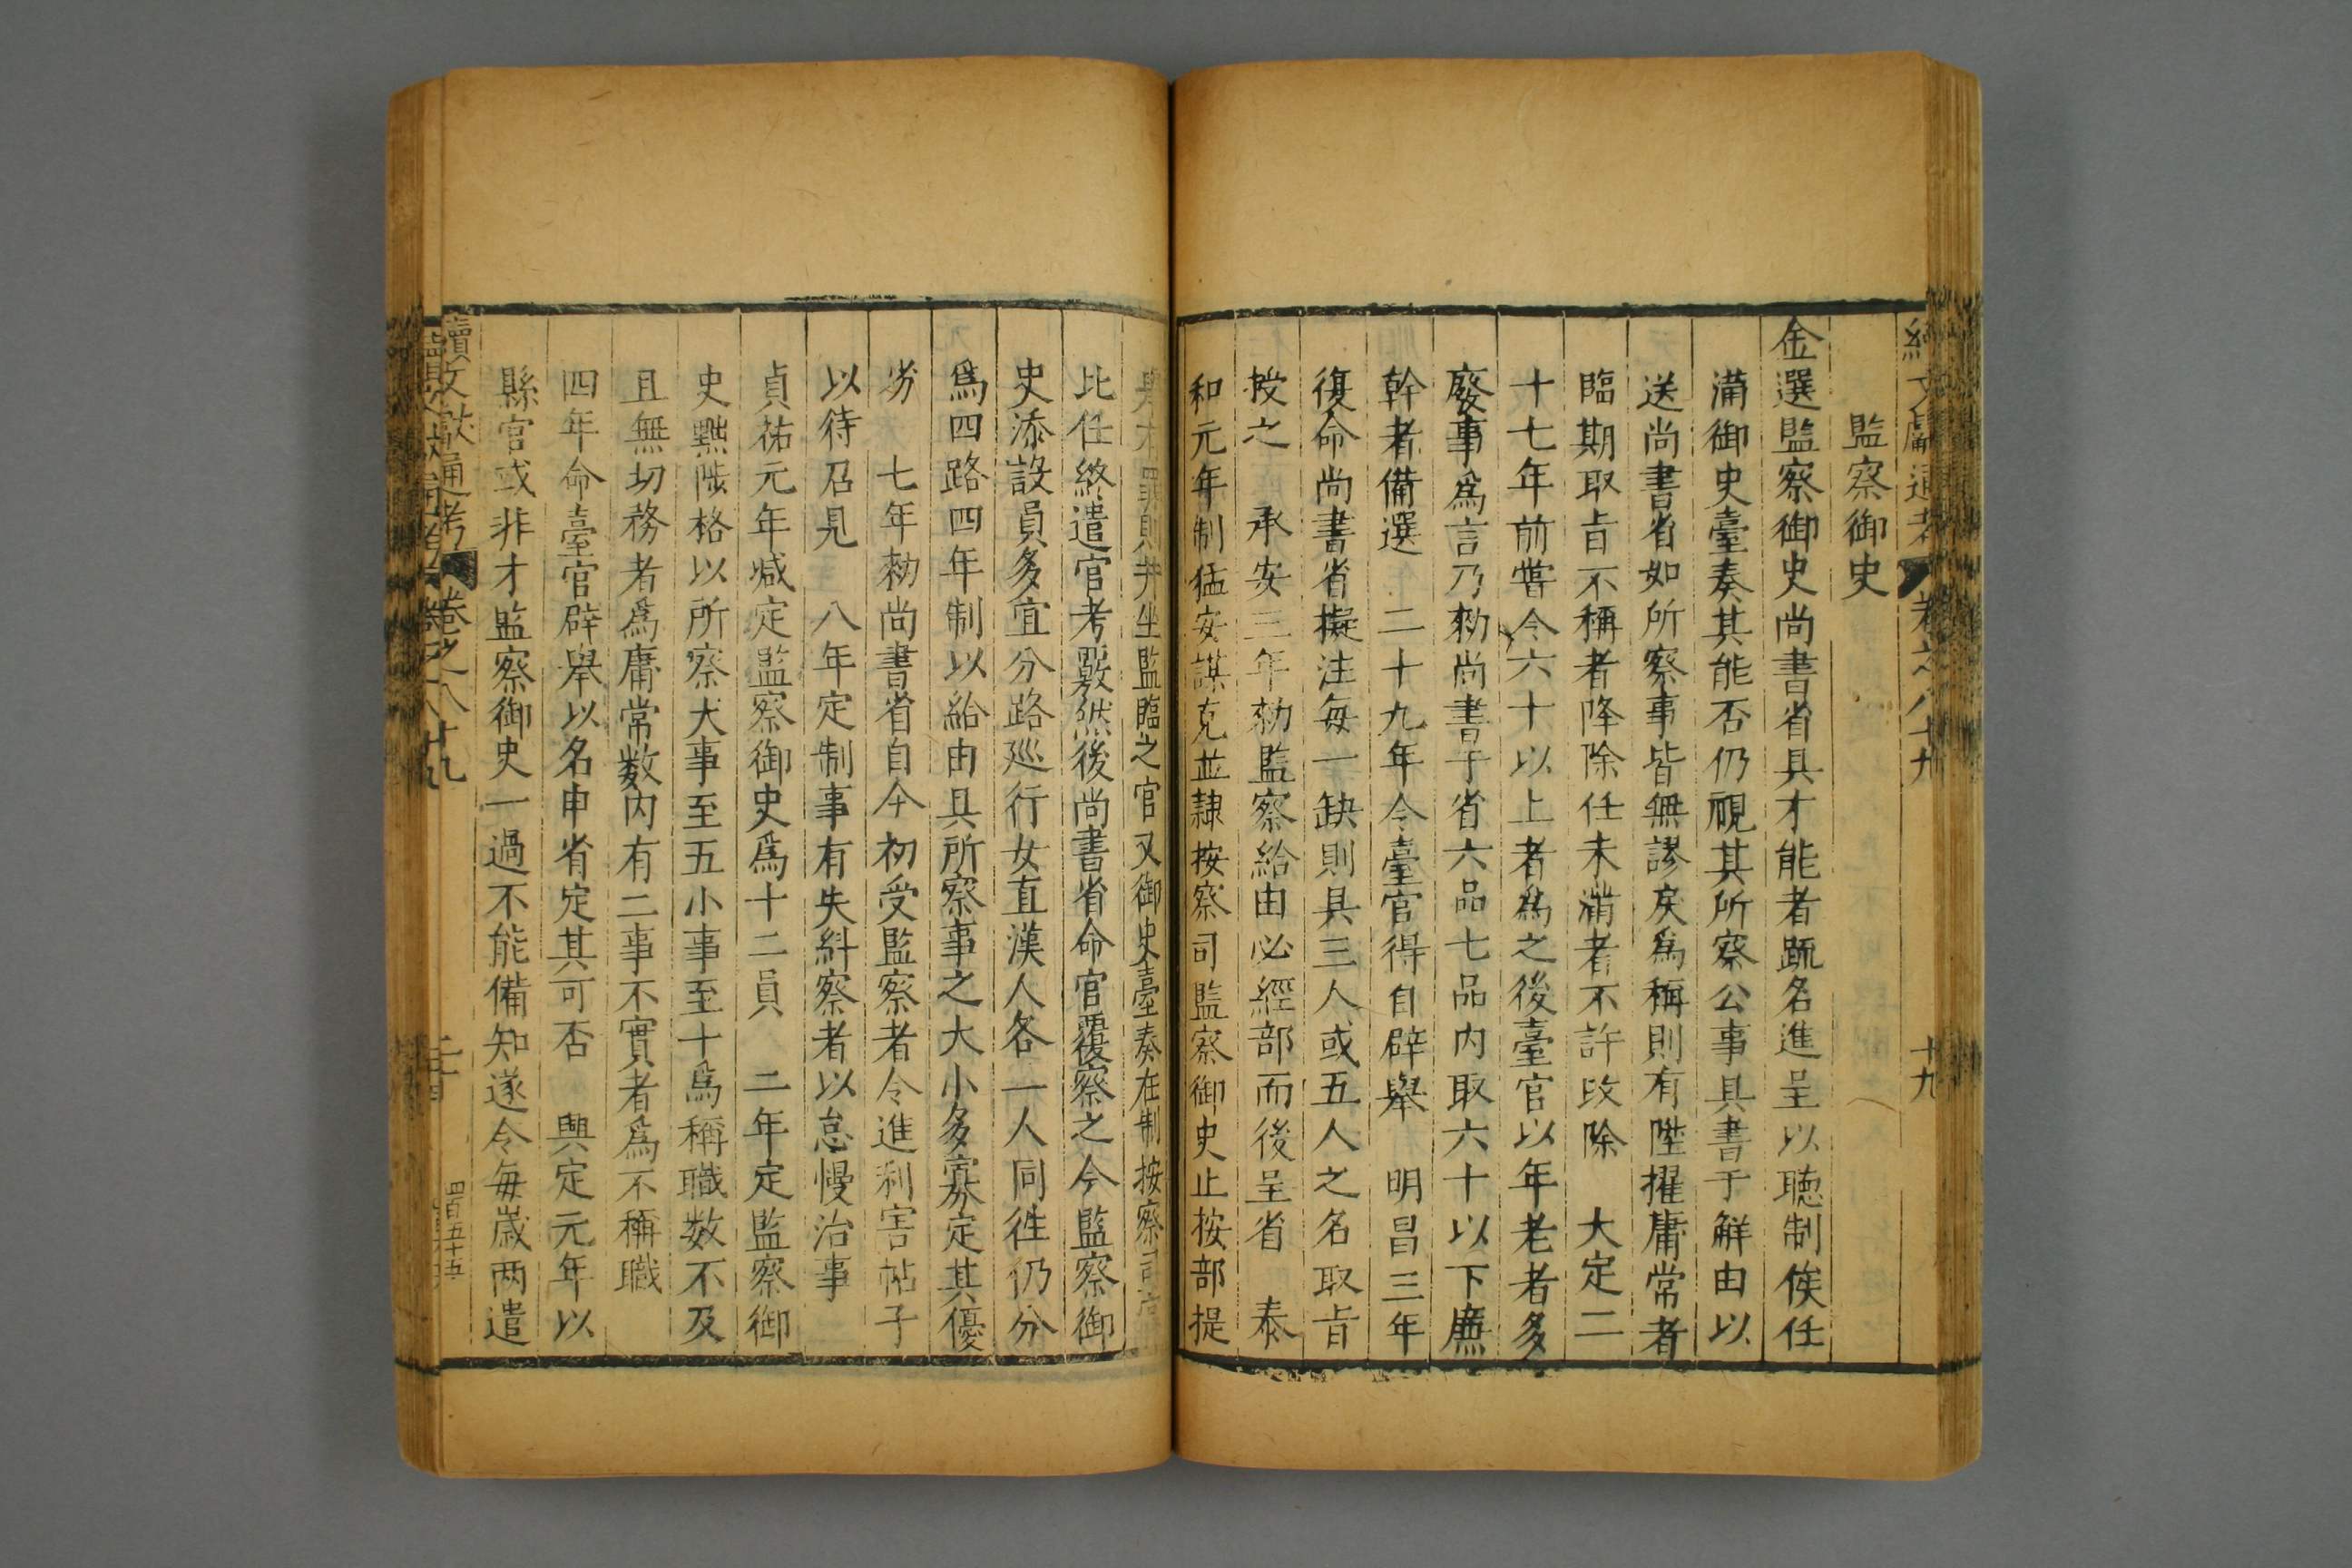 續文獻通考 卷之八十九 十九
監察御史
金選監察御史尚書省具才能者疏名進呈以聽制俟任
滿御史臺奏其能否仍視其所察公事具書于解由以
送尚書省如所察事皆無謬戾爲稱則有陞擢庸常者
臨期取旨不稱者降除任未滿者不許改除 大定二
十七年前嘗令六十以上者爲之後臺官以年老者多
廢事爲言乃勑尚書于省六品七品内取六十以下廉
幹者備選 二十九年令臺官得自辟舉 明昌三年
復命尚書省擬注每一缺則具三人或五人之名取旨
授之 承安三年勑監察給由必經部而後呈省 泰
和元年制猛安謀克並隷按察司監察御史止按部提
舉本 罪則并坐監臨之官又御史臺奏在制按察司
比任終遣官考覈然後尚書省命官覆察之今監察御
史添設員多宜分路廵行女直漢人各一人同徃仍分
爲四路四年制以給由具所察事之大小多寡定其優
劣 七年勑尚書省自今初受監察者令進利害帖子
以待召見 八年定制事有失糾察者以怠慢治事
貞祐元年减定監察御史爲十二員 二年定監察御
史黜陟格以所察大事至五小事至十爲稱職数不及
且無切務者爲庸常数内有二事不實者爲不稱職
四年命臺官辟舉以名申省定其可否 興定元年以
縣官或非才監察御史一過不能備知遂令每歲两遣
續文獻通考 卷之八十九
四百五十五